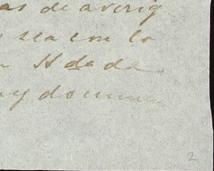 as de averig
sea con la
H da de
ay docum
2